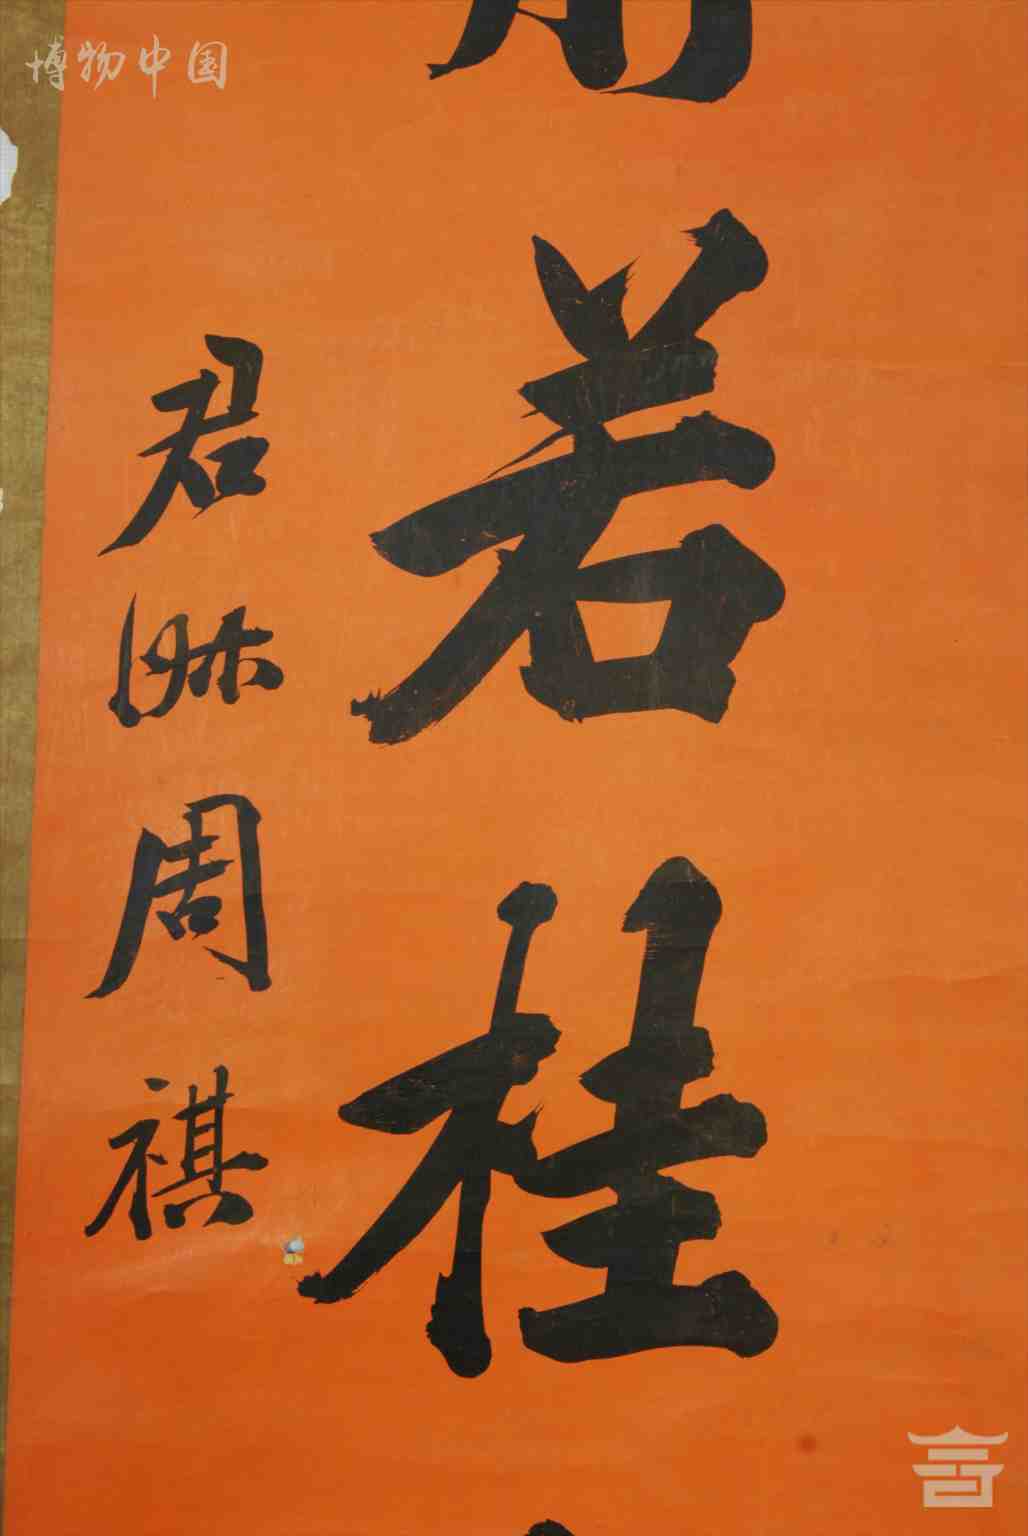 博物中国
若桂
君謀周祺